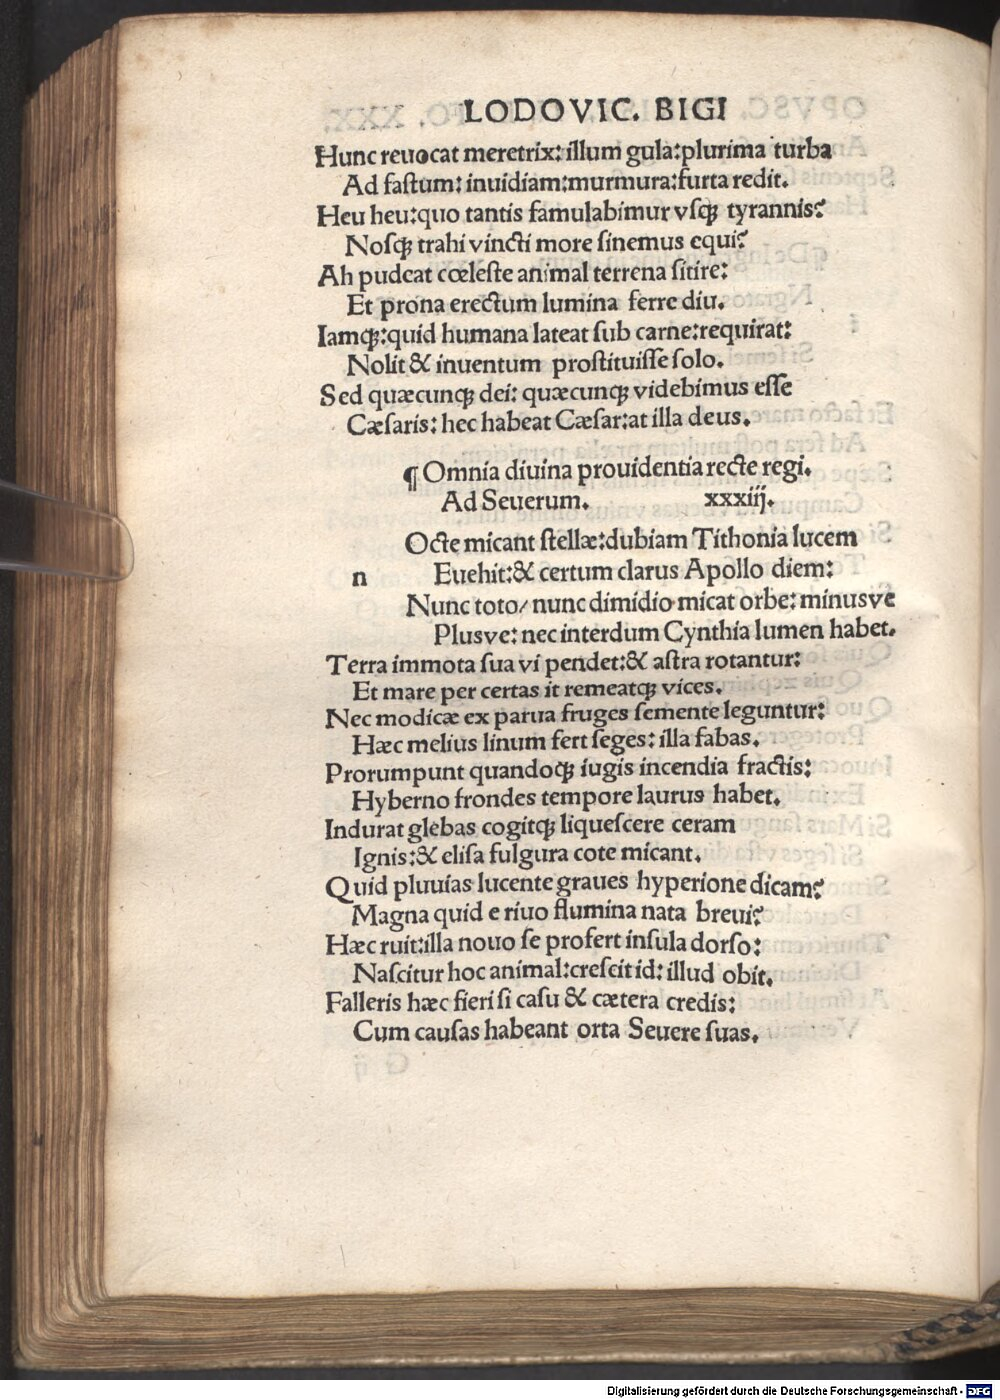 LODOVIC. BIGI
Hunc reuocat meretrix: illum gula: plurima turba
Ad fastum: inuidiam: murmura: furta redit.
Heu heu: quo tantis famulabimur vsqꝫ tyrannis?
Nosqꝫ trahi vincti more sinemus equi?
Ah pudeat cœleste animal terrena sitire:
Et prona erectum lumina ferre diu.
Iamqꝫ: quid humana lateat sub carne: requirat:
Nolit & inuentum prostituisse solo.
Sed quæcunqꝫ dei: quæcunqꝫ videbimus esse
Cæsaris: hec habeat Cæsar: at illa deus.
¶ Omnia diuina prouidentia recte regi.
Ad Seuerum. xxxiij.
n Octe micant stellæ: dubiam Tithonia lucem
Euehit: & certum clarus Apollo diem:
Nunc toto/ nunc dimidio micat orbe: minusve
Plusve: nec interdum Cynthia lumen habet.
Terra immota sua vi pendet: & astra rotantur:
Et mare per certas it remeatqꝫ vices.
Nec modicæ ex parua fruges semente leguntur:
Hæc melius linum fert seges: illa fabas.
Prorumpunt quandoqꝫ iugis incendia fractis:
Hyberno frondes tempore laurus habet.
Indurat glebas cogitqꝫ liquescere ceram
Ignis: & elisa fulgura cote micant.
Quid pluuias lucente graues hyperione dicam?
Magna quid e riuo flumina nata breui?
Hæc ruit: illa nouo se profert insula dorso:
Nascitur hoc animal: crescit id: illud obit.
Falleris hæc fieri si casu & cætera credis:
Cum causas habeant orta Seuere suas.
Digitalisierung gefördert durch die Deutsche Forschungsgemeinschaft - DFG